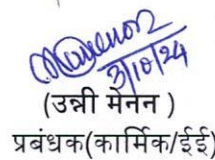 3/10/24
(उन्नी मेनन )
प्रबंधक(कार्मिक/ईई)